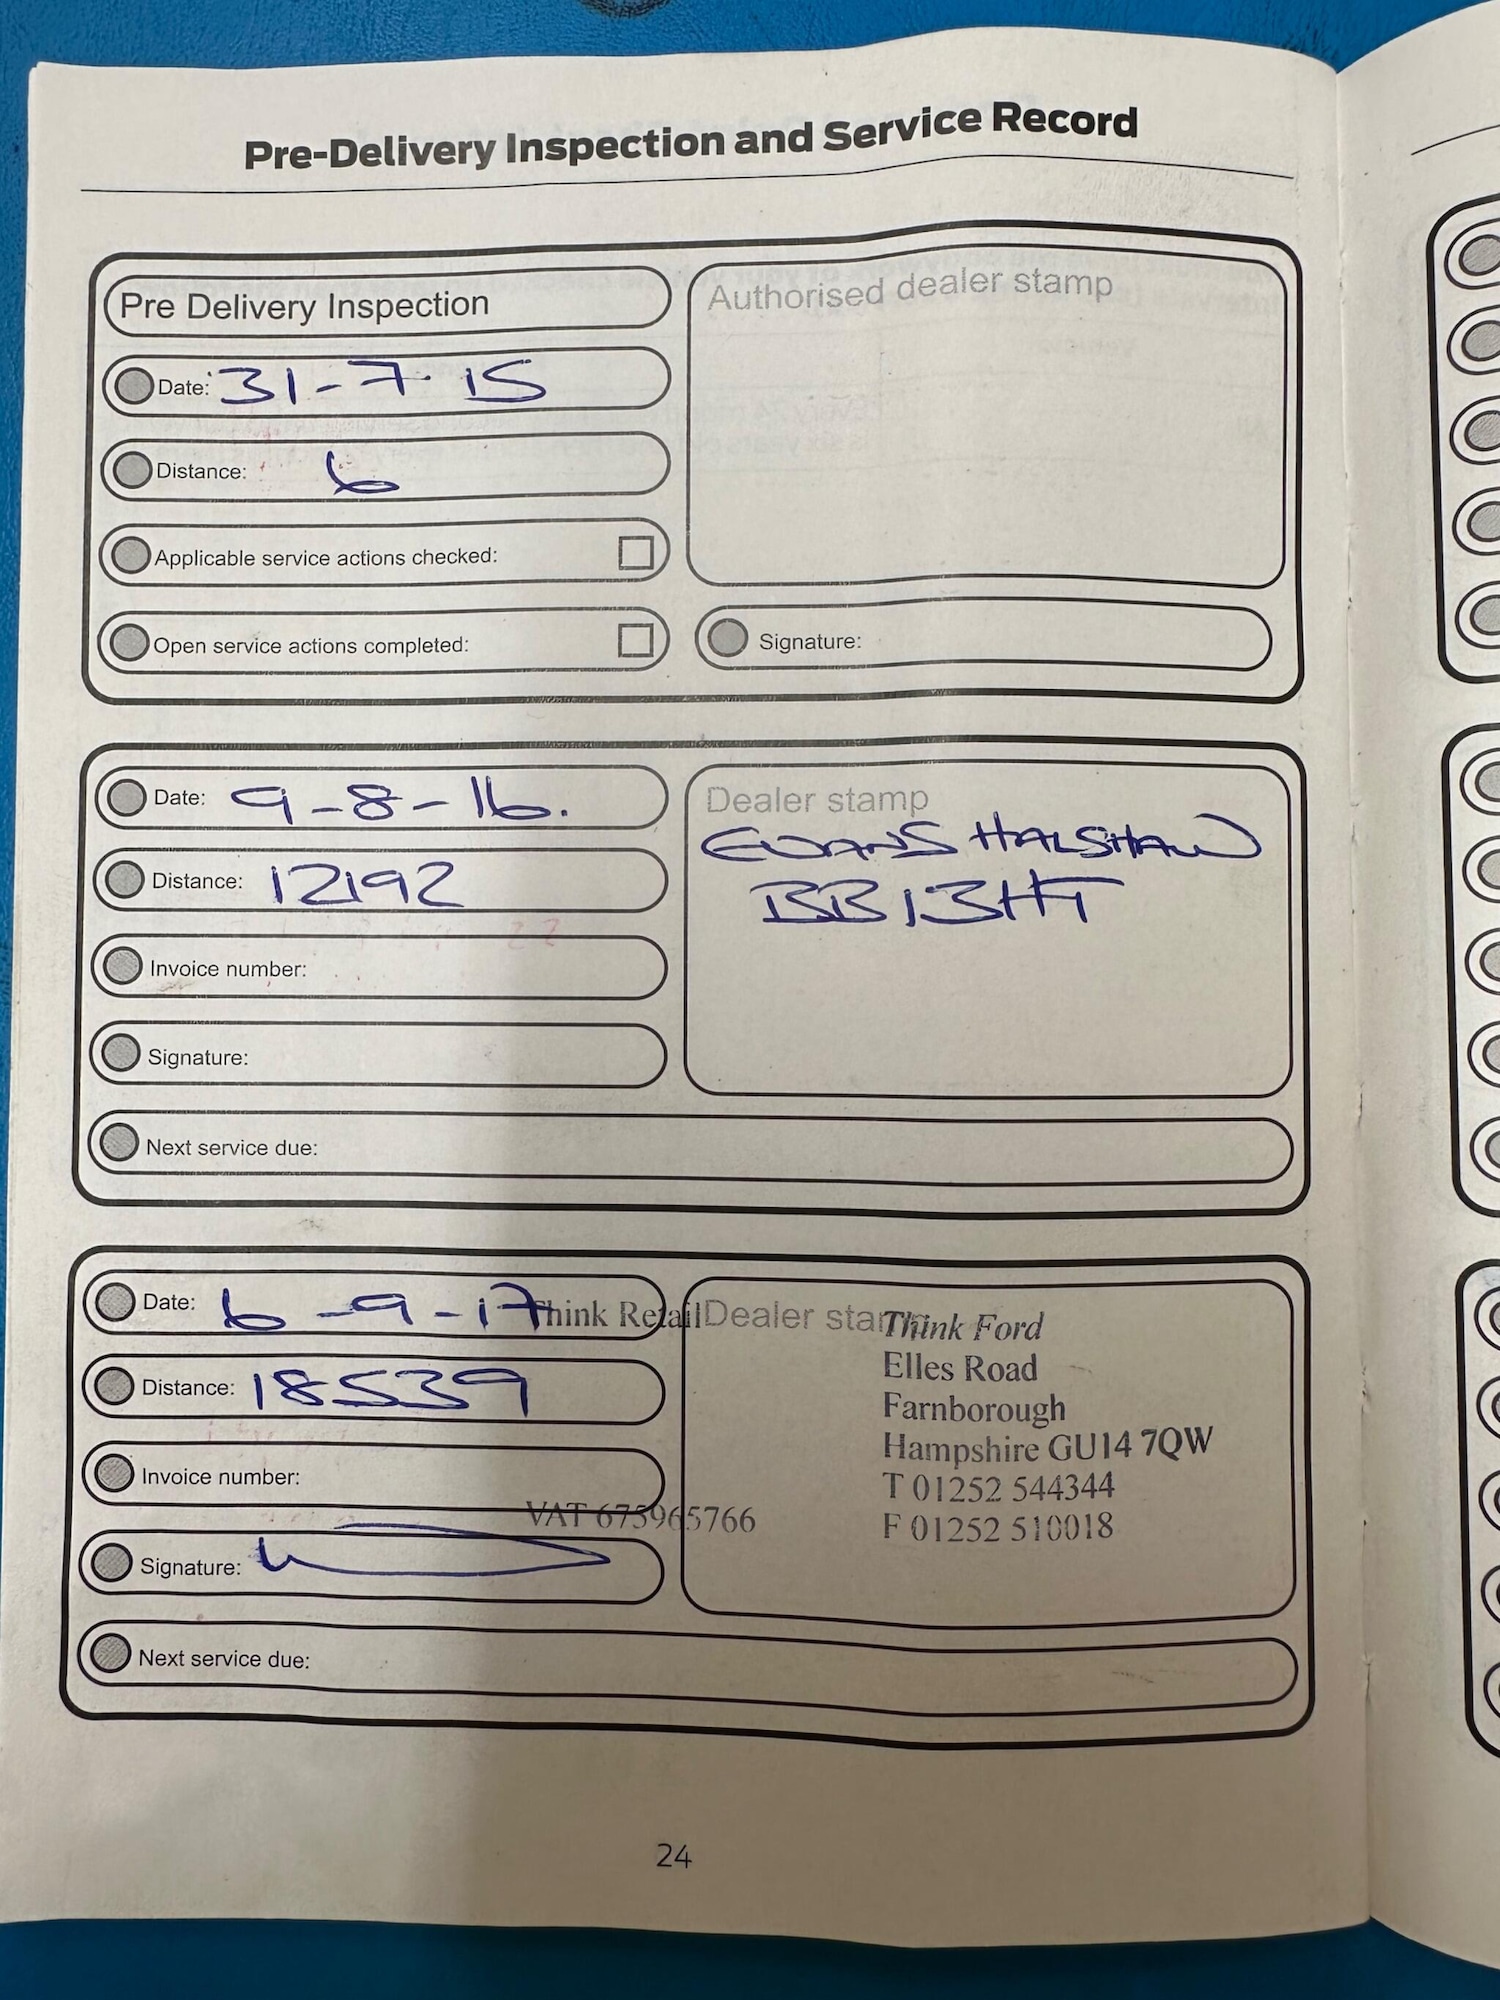 Pre-Delivery Inspection and Service Record
Pre Delivery Inspection
Authorised dealer stamp
Date: 31-7-15
Distance: 6
Applicable service actions checked:
Open service actions completed:
Signature:
Date: 9-8-16.
Dealer stamp
EVANS HALSHAW
BB1 3HT
Distance: 12192
Invoice number:
Signature:
Next service due:
Date: 6-9-17
Think Retail
Dealer stamp
Think Ford
Elles Road
Farnborough
Hampshire GU14 7QW
T 01252 544344
F 01252 510018
Distance: 18539
Invoice number:
VAT 675965766
Signature:
Next service due:
24